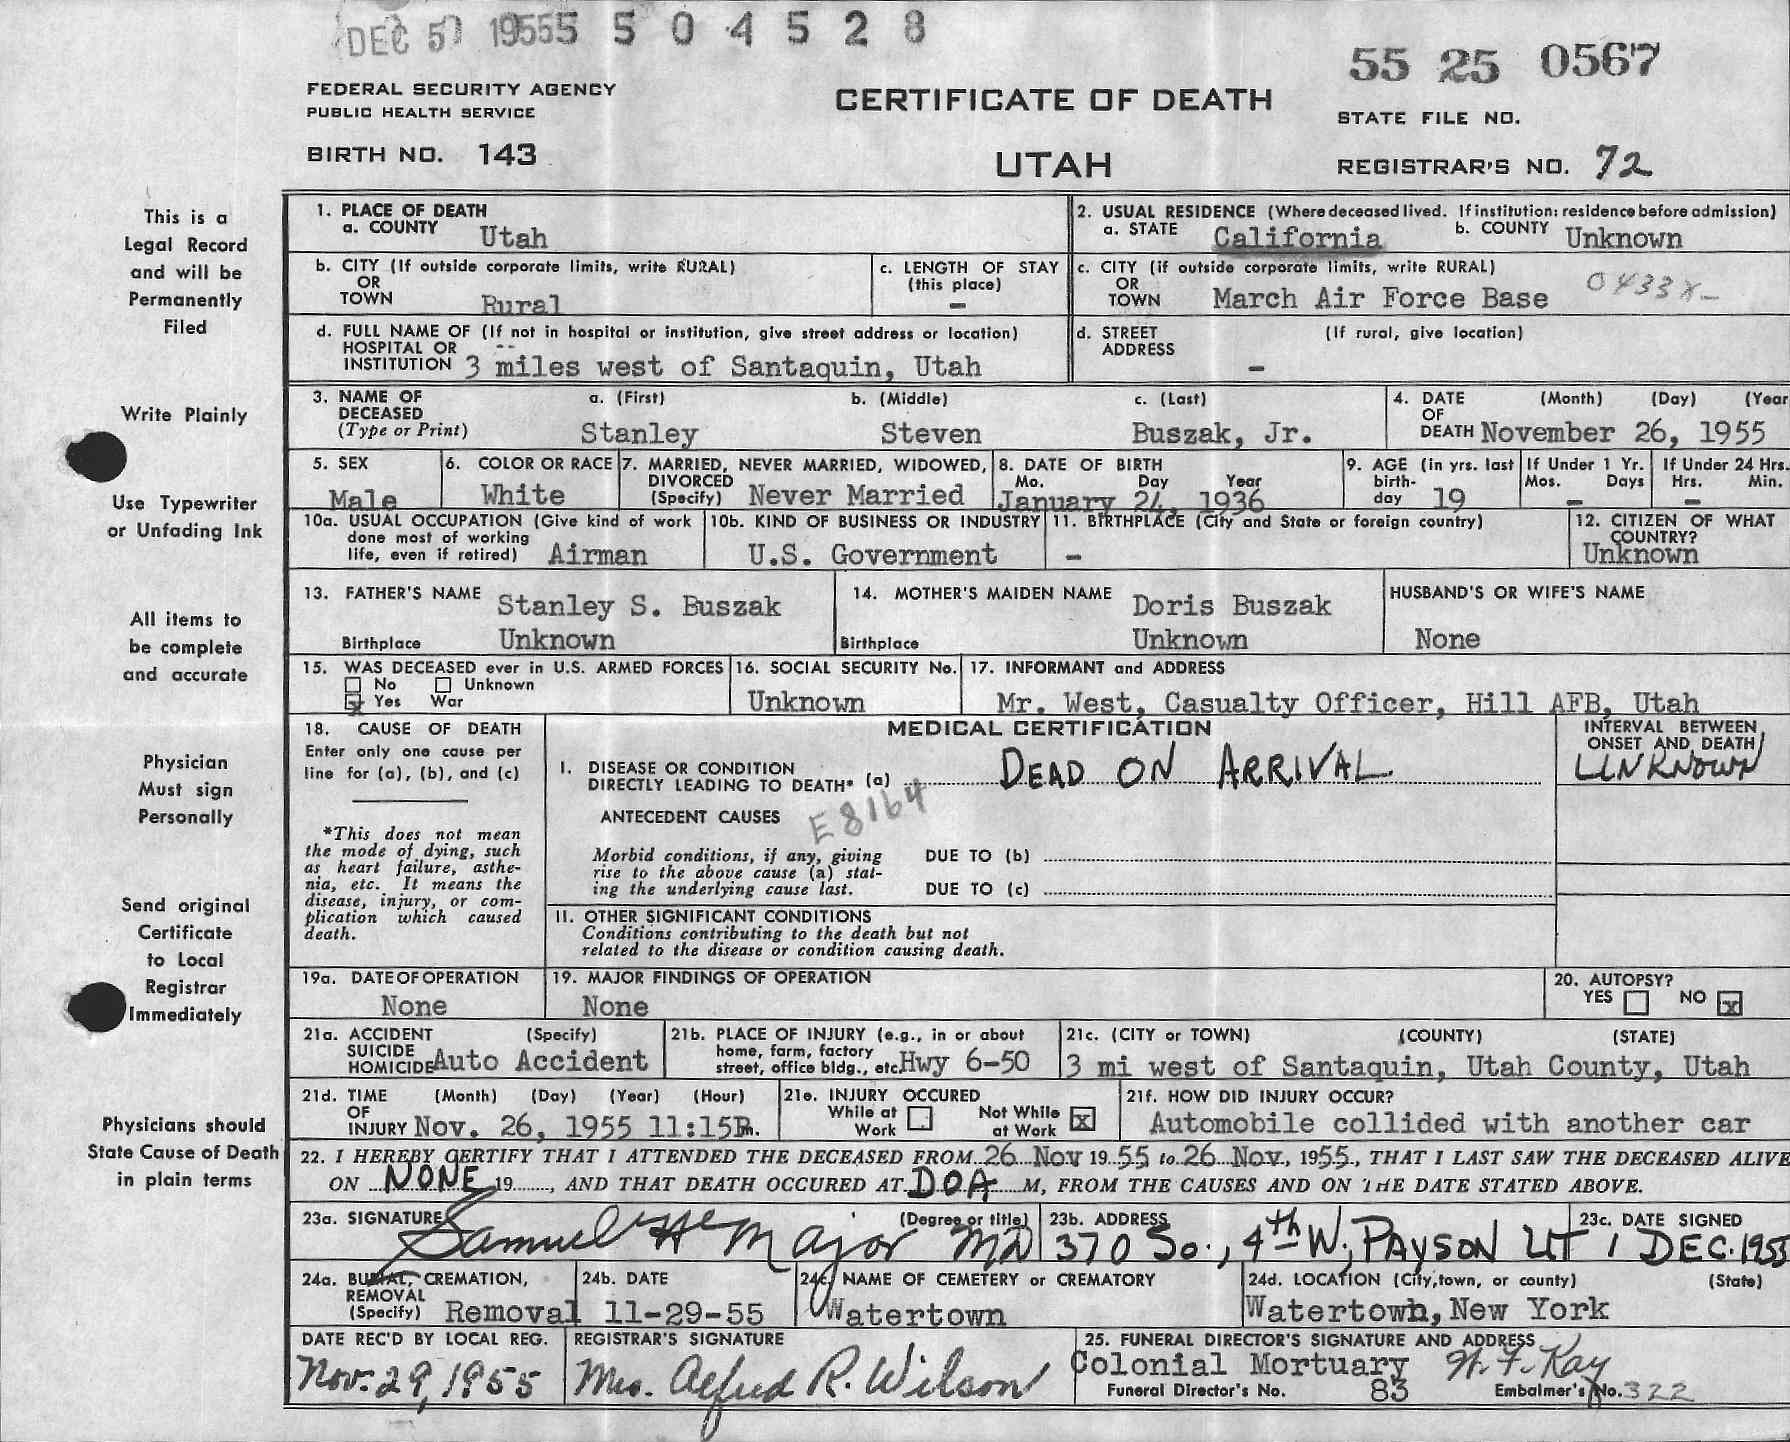 DEC 5 1955 5 5 0 4 5 2 8
55 25 0567
FEDERAL SECURITY AGENCY
PUBLIC HEALTH SERVICE
CERTIFICATE OF DEATH
STATE FILE NO.
BIRTH NO. 143
UTAH
REGISTRAR'S NO. 72
This is a
Legal Record
and will be
Permanently
Filed
Write Plainly
Use Typewriter
or Unfading Ink
All items to
be complete
and accurate
Physician
Must sign
Personally
Send original
Certificate
to Local
Registrar
Immediately
Physicians should
State Cause of Death
in plain terms
1. PLACE OF DEATH
a. COUNTY Utah
2. USUAL RESIDENCE (Where deceased lived. If institution: residence before admission)
a. STATE California b. COUNTY Unknown
b. CITY (If outside corporate limits, write RURAL)
OR
TOWN Rural
c. LENGTH OF STAY
(this place)
-
c. CITY (if outside corporate limits, write RURAL)
OR
TOWN March Air Force Base
0433X-
d. FULL NAME OF (If not in hospital or institution, give street address or location)
HOSPITAL OR --
INSTITUTION 3 miles west of Santaquin, Utah
d. STREET (If rural, give location)
ADDRESS
-
3. NAME OF a. (First) b. (Middle) c. (Last)
DECEASED
(Type or Print) Stanley Steven Buszak, Jr.
4. DATE (Month) (Day) (Year
OF
DEATH November 26, 1955
5. SEX
Male
6. COLOR OR RACE
White
7. MARRIED, NEVER MARRIED, WIDOWED,
DIVORCED
(Specify) Never Married
8. DATE OF BIRTH
Mo. Day Year
January 24, 1936
9. AGE (in yrs. last
birth-
day 19
If Under 1 Yr.
Mos. Days
-
If Under 24 Hrs.
Hrs. Min.
-
10a. USUAL OCCUPATION (Give kind of work
done most of working
life, even if retired) Airman
10b. KIND OF BUSINESS OR INDUSTRY
U.S. Government
11. BIRTHPLACE (City and State or foreign country)
-
12. CITIZEN OF WHAT
COUNTRY?
Unknown
13. FATHER'S NAME Stanley S. Buszak
Birthplace Unknown
14. MOTHER'S MAIDEN NAME Doris Buszak
Birthplace Unknown
HUSBAND'S OR WIFE'S NAME
None
15. WAS DECEASED ever in U.S. ARMED FORCES
No Unknown
x Yes War
16. SOCIAL SECURITY No.
Unknown
17. INFORMANT and ADDRESS
Mr. West, Casualty Officer, Hill AFB, Utah
18. CAUSE OF DEATH
Enter only one cause per
line for (a), (b), and (c)
*This does not mean
the mode of dying, such
as heart failure, asthe-
nia, etc. It means the
disease, injury, or com-
plication which caused
death.
MEDICAL CERTIFICATION
INTERVAL BETWEEN
ONSET AND DEATH
UNKNOWN
I. DISEASE OR CONDITION
DIRECTLY LEADING TO DEATH* (a) DEAD ON ARRIVAL
E8164
ANTECEDENT CAUSES
Morbid conditions, if any, giving
rise to the above cause (a) stat-
ing the underlying cause last.
DUE TO (b)
DUE TO (c)
II. OTHER SIGNIFICANT CONDITIONS
Conditions contributing to the death but not
related to the disease or condition causing death.
19a. DATE OF OPERATION
None
19. MAJOR FINDINGS OF OPERATION
None
20. AUTOPSY?
YES NO x
21a. ACCIDENT (Specify)
SUICIDE
HOMICIDE Auto Accident
21b. PLACE OF INJURY (e.g., in or about
home, farm, factory
street, office bldg., etc. Hwy 6-50
21c. (CITY or TOWN) (COUNTY) (STATE)
3 mi west of Santaquin, Utah County, Utah
21d. TIME (Month) (Day) (Year) (Hour)
OF
INJURY Nov. 26, 1955 11:15P.m.
21e. INJURY OCCURED
While at Work Not While at Work x
21f. HOW DID INJURY OCCUR?
Automobile collided with another car
22. I HEREBY CERTIFY THAT I ATTENDED THE DECEASED FROM 26 Nov 19 55, to 26 Nov., 1955, THAT I LAST SAW THE DECEASED ALIVE
ON NONE 19, AND THAT DEATH OCCURED AT DOA M, FROM THE CAUSES AND ON THE DATE STATED ABOVE.
23a. SIGNATURE (Degree or title)
Samuel H Major MD
23b. ADDRESS
370 So., 4th W, PAYSON UT
23c. DATE SIGNED
1 DEC. 1955
24a. BURIAL, CREMATION,
REMOVAL
(Specify) Removal
24b. DATE
11-29-55
24c. NAME OF CEMETERY or CREMATORY
Watertown
24d. LOCATION (City, town, or county) (State)
Watertown, New York
DATE REC'D BY LOCAL REG.
Nov. 29, 1955
REGISTRAR'S SIGNATURE
Mrs. Alfred R. Wilson
25. FUNERAL DIRECTOR'S SIGNATURE AND ADDRESS
Colonial Mortuary W. F. Kay
Funeral Director's No. 83 Embalmer's No. 322